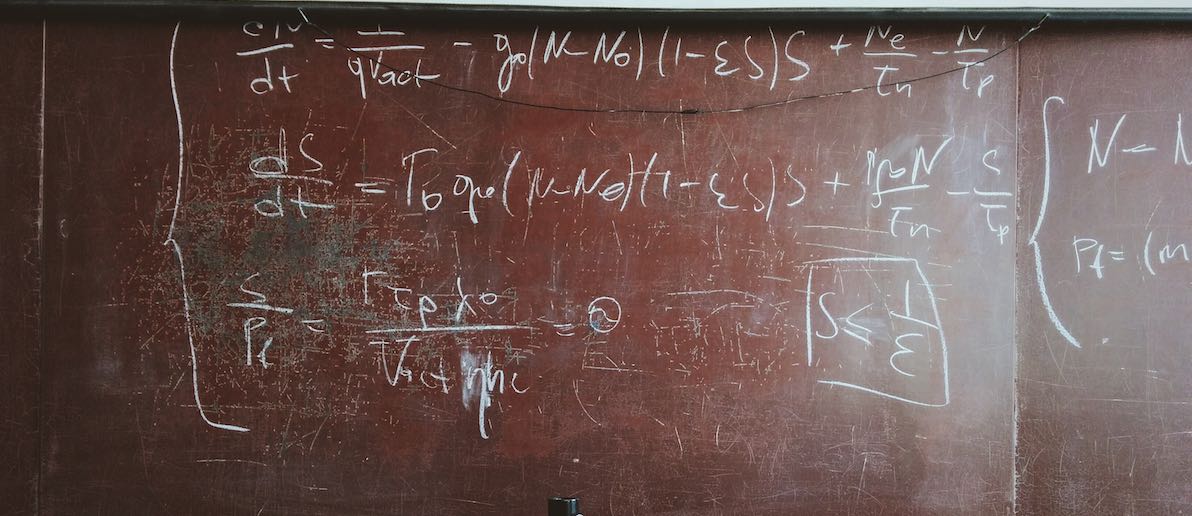 dN/dt = I/qVact - g0(N-N0)(1-εS)S + Ne/τn - N/τp
dS/dt = Γ0g0(N-N0)(1-εS)S + N/τn - S/τp
S/Pf = Γτpλ0/Vact ηhc = 2
S ≤ 1/ε
N - N
Pf = (m